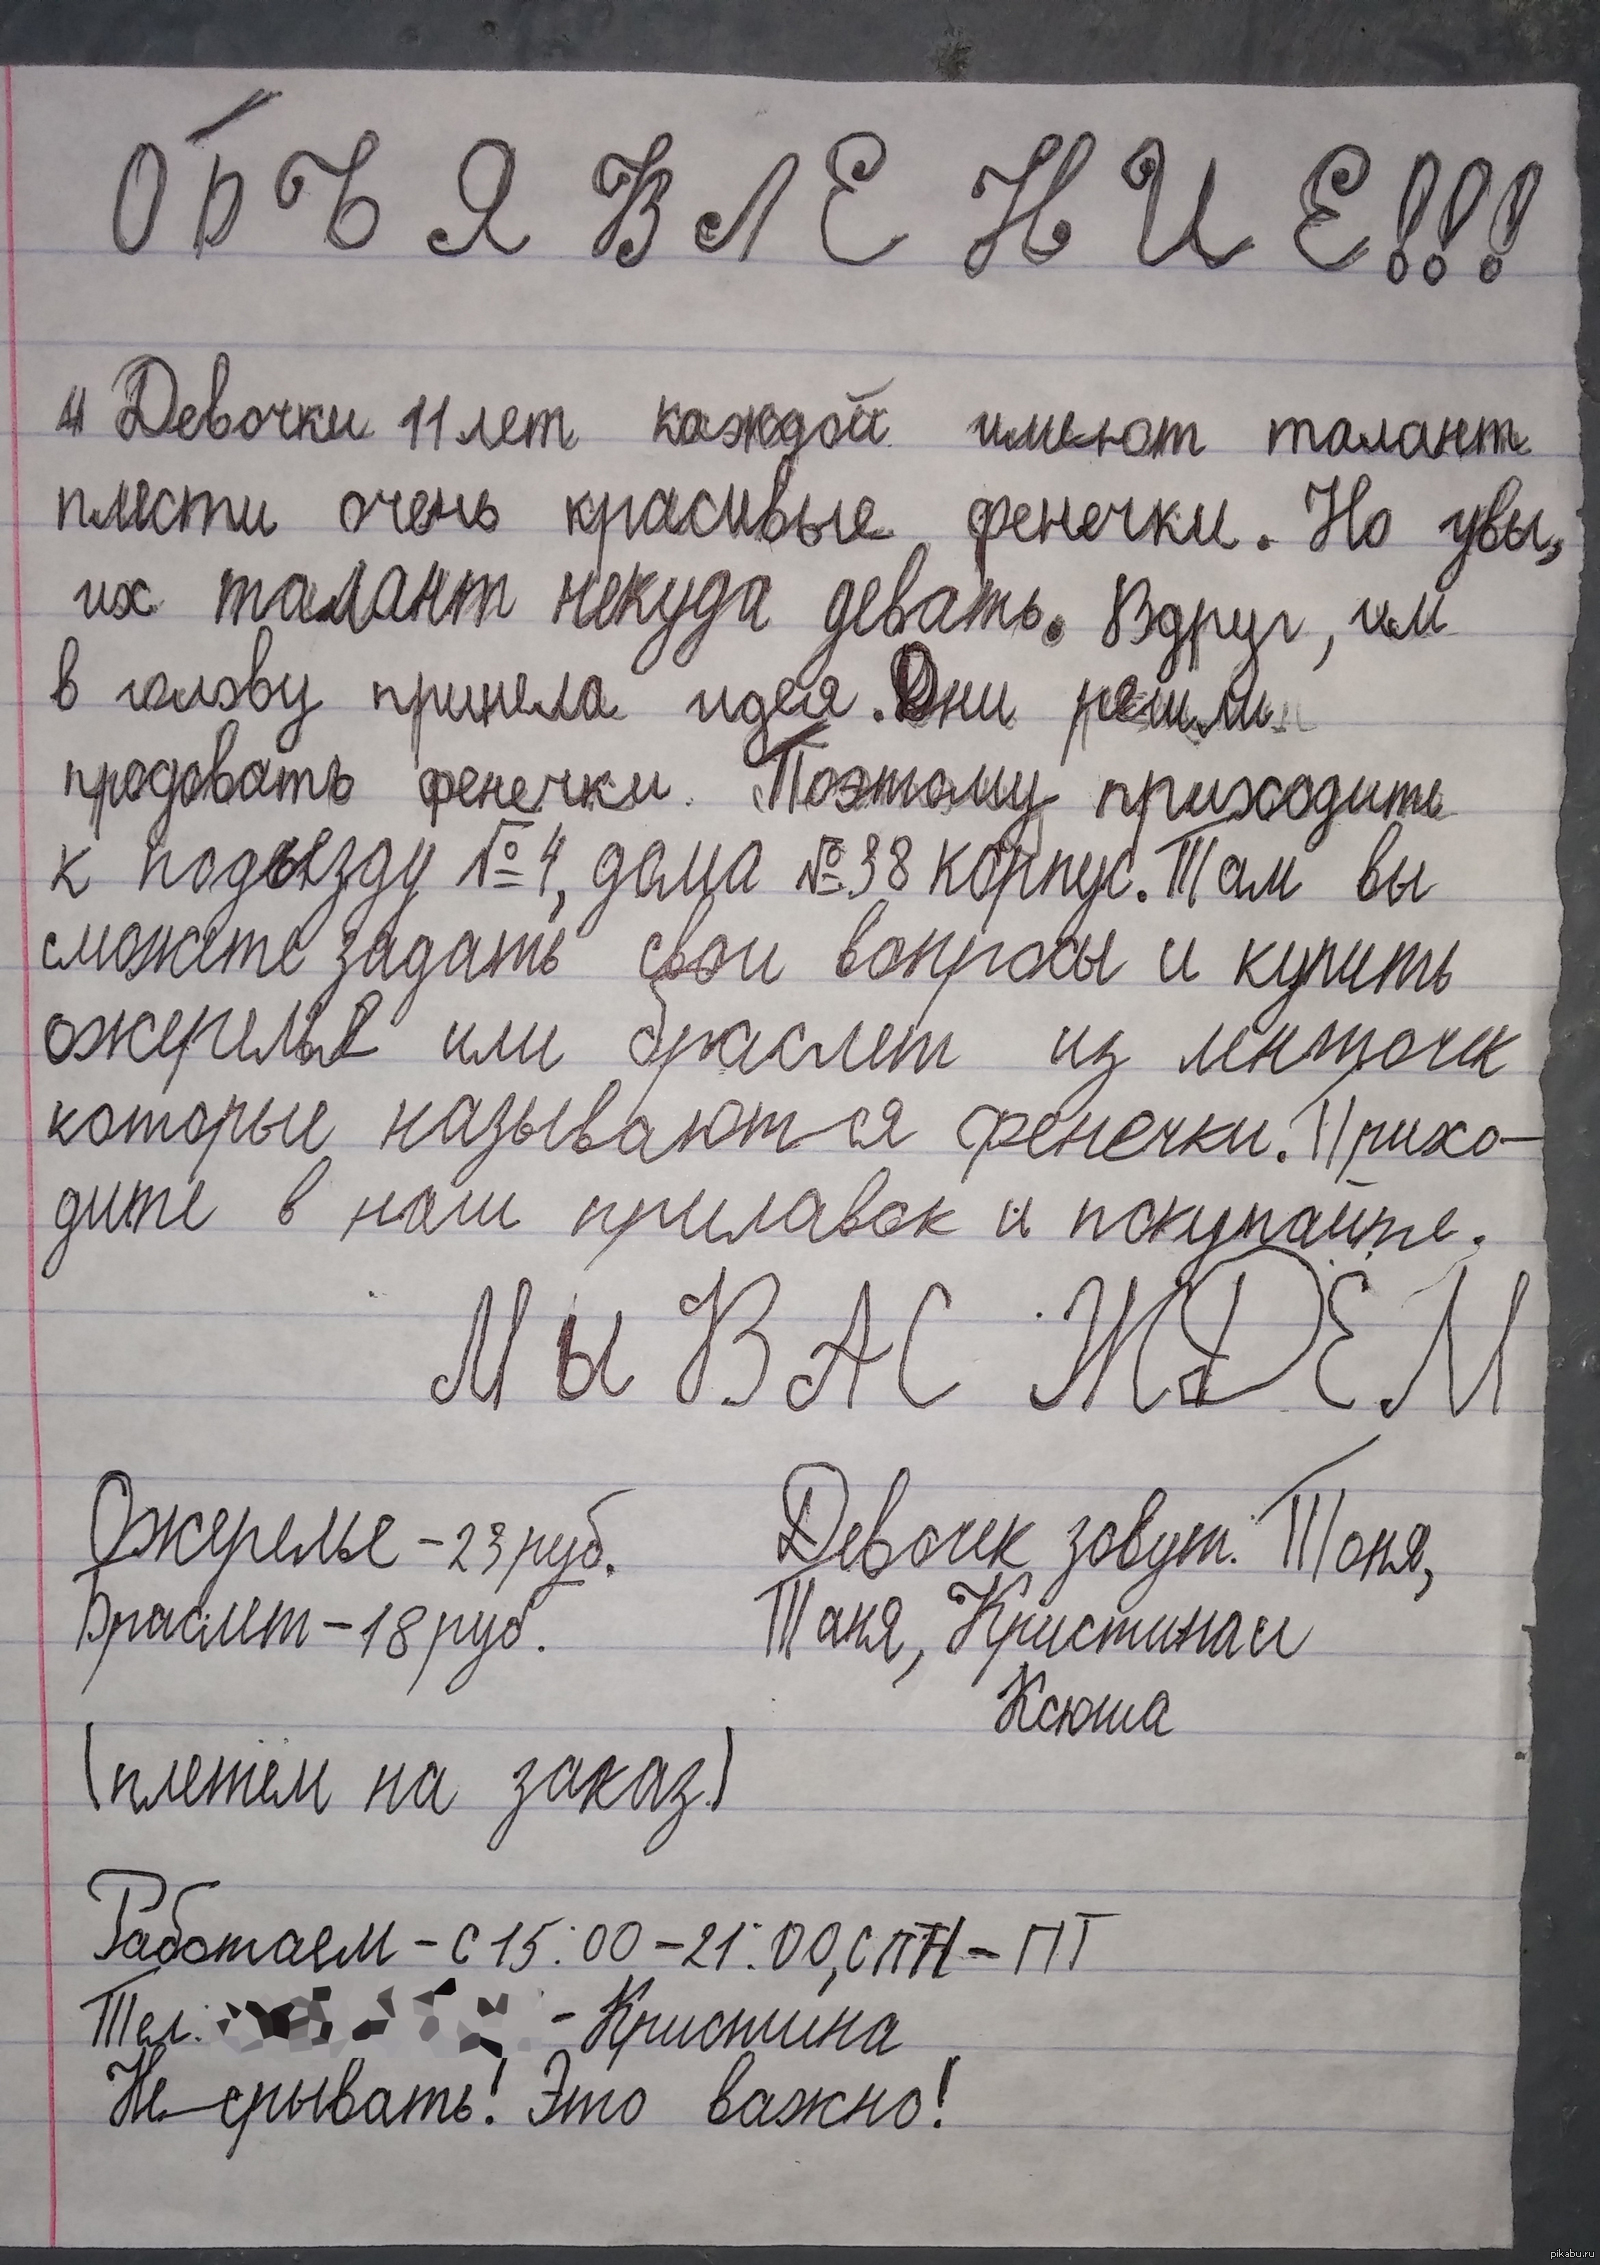 ОБЪЯВЛЕНИЕ!!!
4 Девочки 11 лет каждой имеют талант
плести очень красивые фенечки. Но увы,
их талант некуда девать. Вдруг, им
в голову пришла идея. Они решили
продовать фенечки. Поэтому приходите
к подъезду №4, дома №38 корпус. Там вы
сможете задать свои вопросы и купить
ожерелье или браслет из ленточек
которые называются фенечки. Прихо-
дите в наш прилавок и покупайте.
МЫ ВАС ЖДЕМ
Ожерелье - 23 руб.
Браслет - 18 руб.
(плетём на заказ)
Девочек зовут: Тоня,
Таня, Кристина и
Ксюша
Работаем - с 15:00 - 21:00, с ПН - ПТ
Тел: - Кристина
Не срывать! Это важно!
pikabu.ru